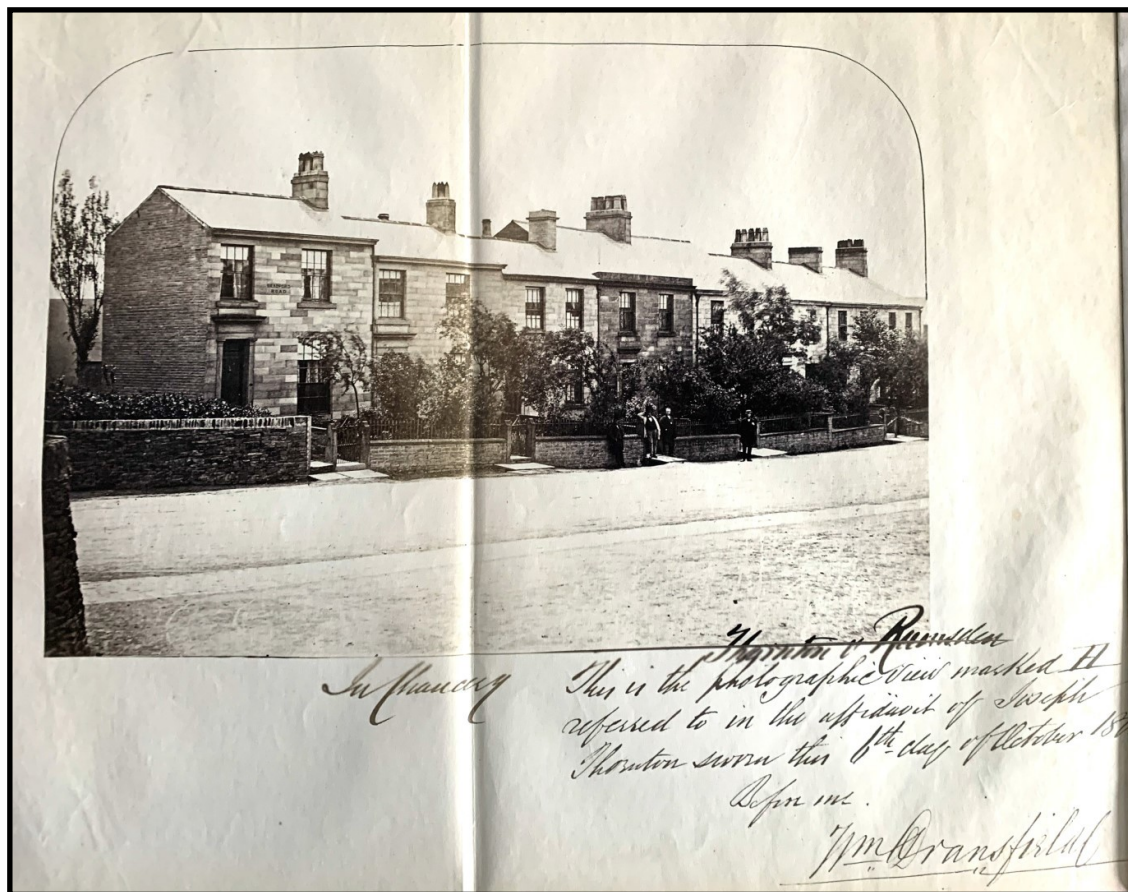 In Chancery
Thornton v Ramsden
This is the photographic view marked H
referred to in the affidavit of Joseph
Thornton sworn this 6th day of October
Before me.
Wm Dransfield